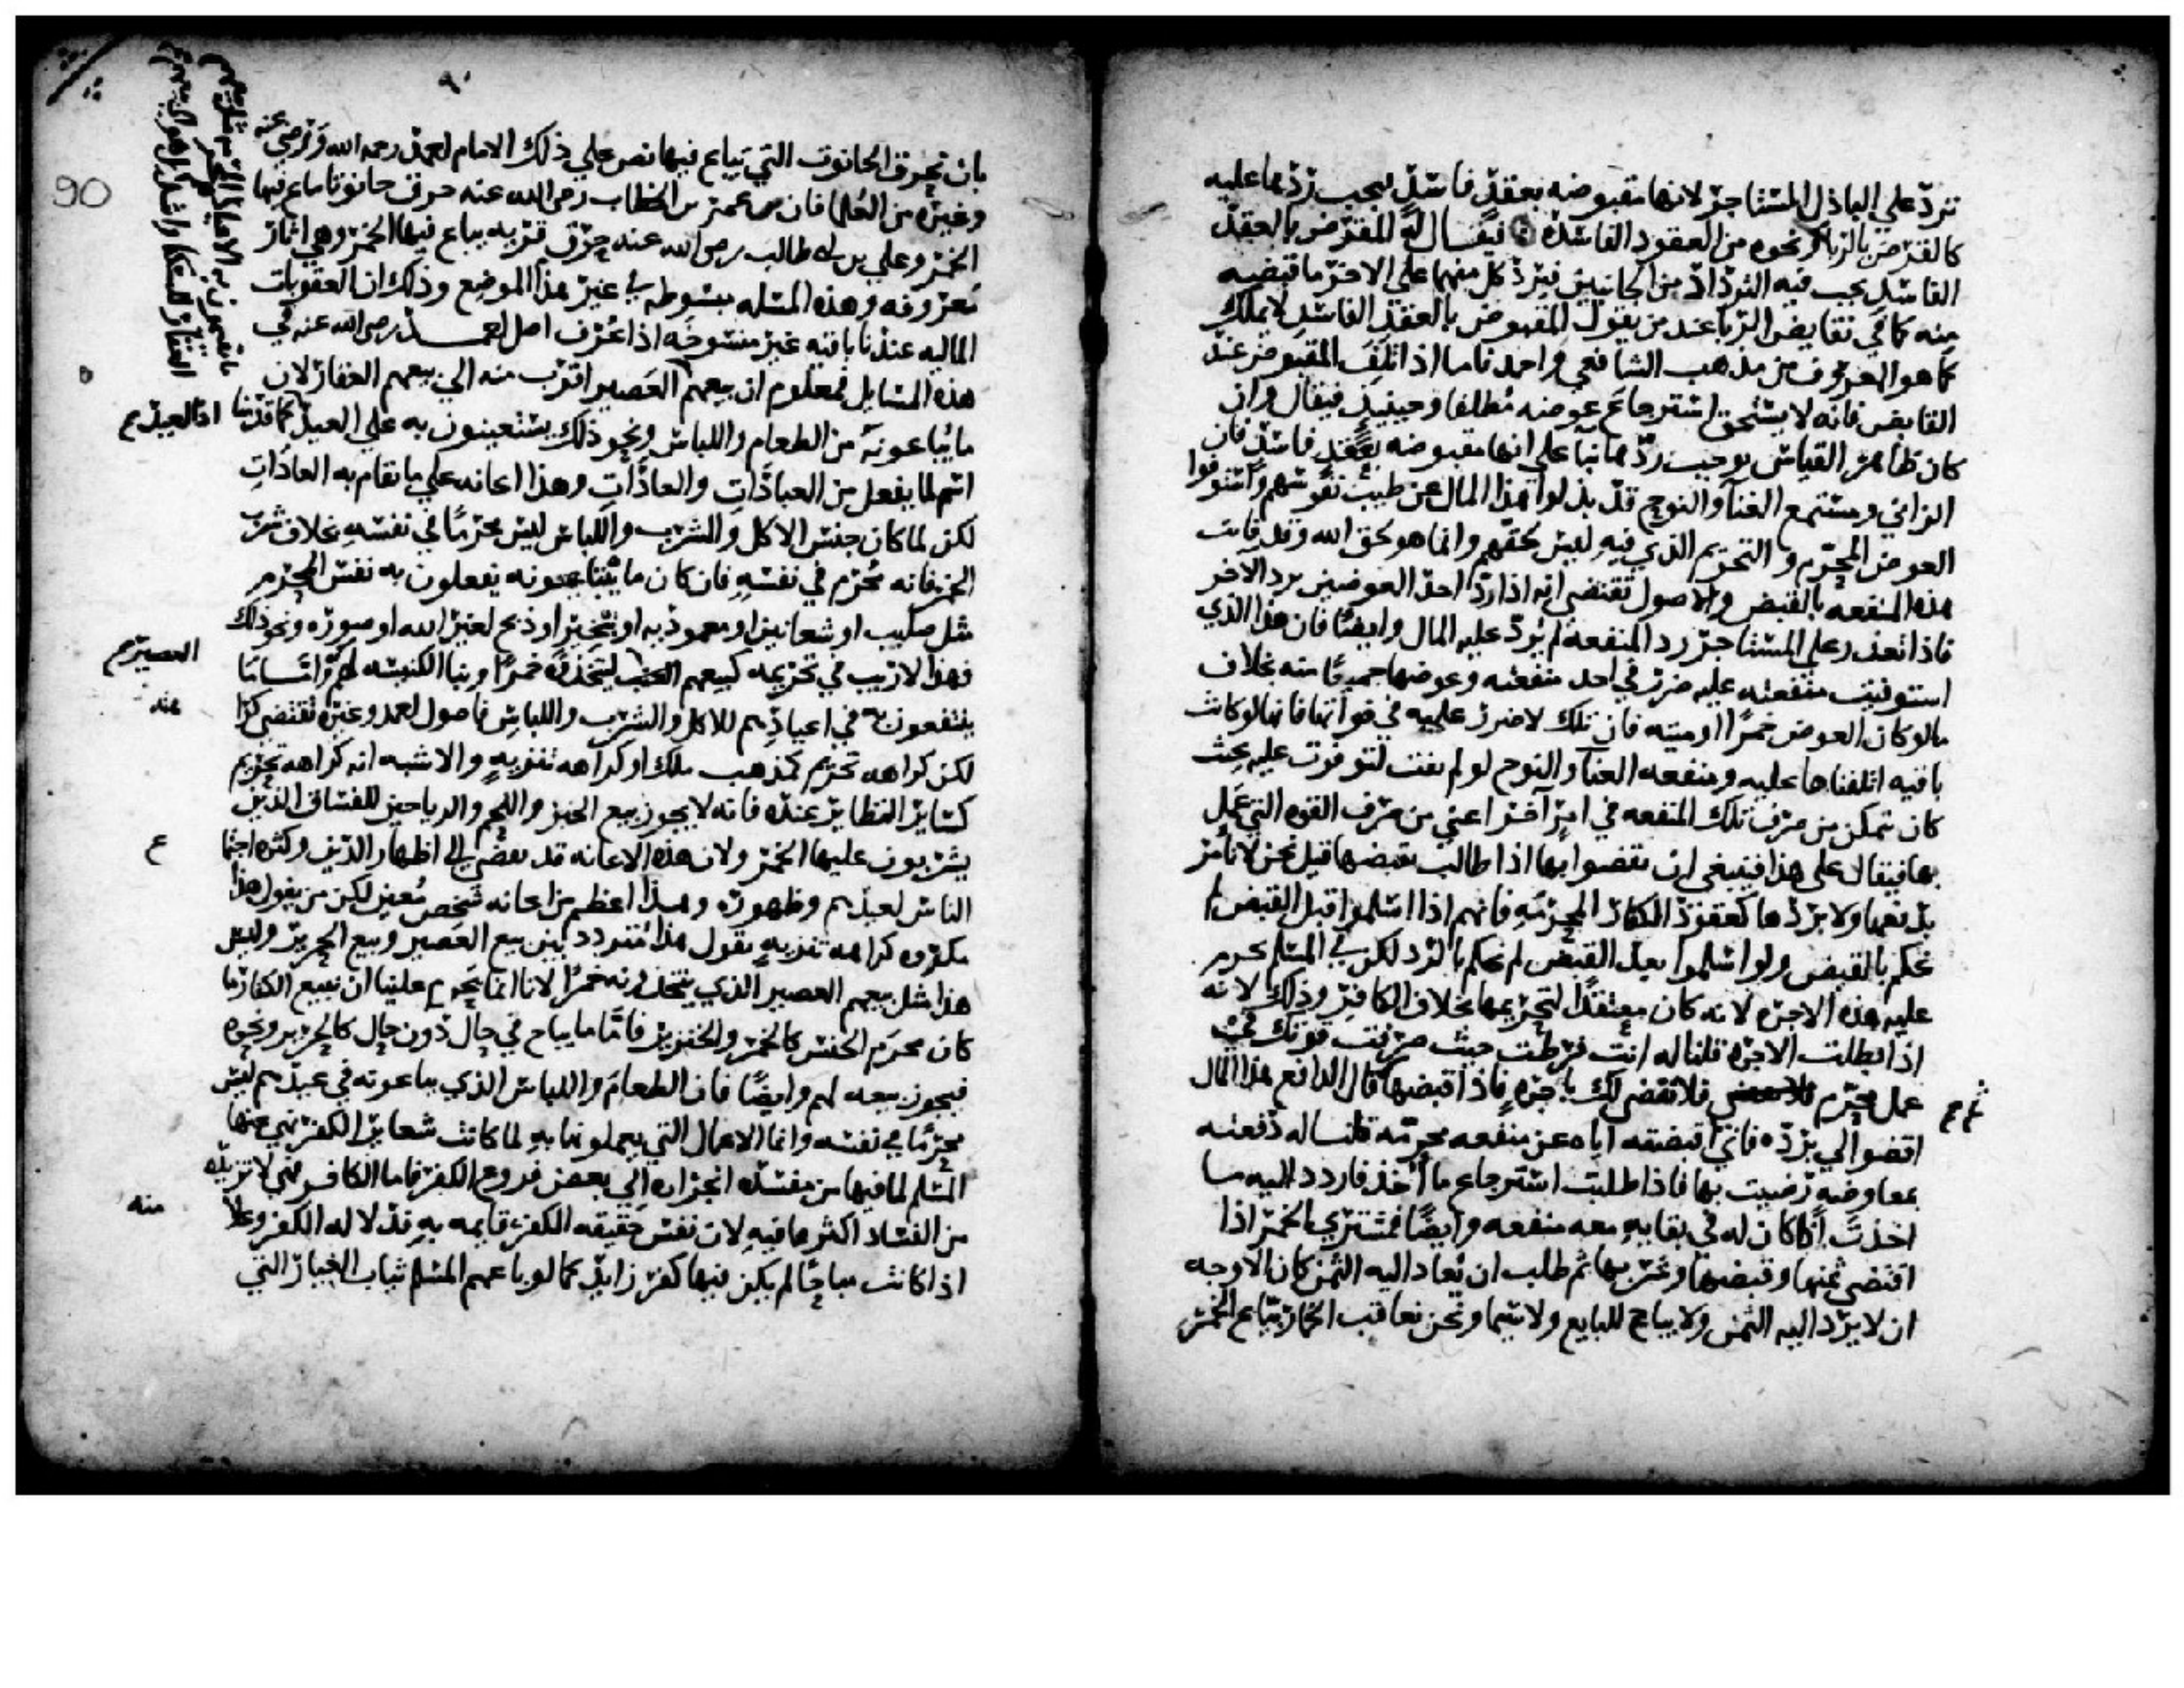 ترد على الباذل المستاجر لانها مقبوضه بعقد فاسد يجب ردها عليه
كالقرض بالربا ونحوه من العقود الفاسده فيقال له المقبوض بالعقد
الفاسد يجب فيه التراد من الجانبين فيرد كل منهما على الاخر ما قبضه
منه كما في تقابض الربا عند من يقول المقبوض بالعقد الفاسد لا يملك
كما هو المعروف من مذهب الشافعي واحمد فاما اذا تلف المقبوض عند
القابض فانه لا يستحق استرجاع عوضه مطلقا وحينيذ فيقال وان
كان ظاهر القياس يوجب ردها بنا على انها مقبوضه بعقد فاسد فان
الزاني ومستمع الغنا والنوح قد بذلوا هذا المال عن طيب نفوسهم واستوفوا
العوض المحرم والتحريم الذي فيه ليس لحقهم وانما هو لحق الله وقد فاتت
هذه المنفعه بالقبض والاصول تقتضي انه اذا رد احد العوضين يرد الاخر
فاذا تعذر على المستاجر رد المنفعه لم يرد عليه المال وايضا فان هذا الذي
استوفيت منفعته عليه ضرر في اخذ منفعته وعوضها جميعا منه بخلاف
مالو كان العوض خمرا او ميته فان تلك لا ضرر عليه في فواتها فانها لو كانت
باقيه اتلفناها عليه ومنفعه الغنا والنوح لو لم تفت لتوفرت عليه بحيث
كان يتمكن من صرف تلك المنفعه في امر آخر اعني من صرف القوه التي عمل
بها فيقال على هذا فينبغي ان تقضوا بها اذا طالب بقبضها قيل نحن لا نامر
بدفعها ولا بردها كعقود الكفار المحرمه فانهم اذا اسلموا قبل القبض لم
نحكم بالقبض ولو اسلموا بعد القبض لم نحكم بالرد لكن في المسلم تحرم
عليه هذه الاجره لانه كان معتقدا لتحريمها بخلاف الكافر وذلك لانه
اذا طلب الاجره قلنا له انت فرطت حيث صرفت قوتك في
عمل محرم فلا نقضي لك باجره فاذا قبضها قال الدافع هذا المال
اقضوا لي برده فاني اقبضته اياه عن منفعه محرمه قلنا له دفعته
بمعاوضه رضيت بها فاذا طلبت استرجاع ما اخذ فاردد اليه ما
اخذت اذا كان له في بقايه معه منفعه وايضا فمشتري الخمر اذا
اقتضى ثمنها وقبضها وشربها ثم طلب ان يعاد اليه الثمن كان الاوجه
ان لا يرد اليه الثمن ولا يباح للبايع ولا سيما ونحن نعاقب الخمار بياع الخمر
٩٠
90
بان تحرق الحانوت التي تباع فيها نص على ذلك الامام احمد رحمه الله ورضي عنه
وغيره من العلما فان عمر بن الخطاب رضي الله عنه حرق حانوتا يباع فيها
الخمر وعلي بن ابي طالب رضي الله عنه حرق قريه يباع فيها الخمر وهي اثار
معروفه وهذه المسله مبسوطه في غير هذا الموضع وذلك ان العقوبات
الماليه عندنا باقيه غير منسوخه اذا عرف اصل احمد رضي الله عنه في
هذه المسايل فمعلوم ان بيعهم العصير اقرب منه الي بيعهم العقار لان
ما يباعونه من الطعام واللباس ونحو ذلك يستعينون به على العيد كما قدمنا
اسم لما يفعل من العبادات والعادات وهذا اعانه على ما تقام به العادات
لكن لما كان جنس الاكل والشرب واللباس ليس محرما في نفسه بخلاف شرب
الخمر فانه محرم في نفسه فان كان ما يبتاعونه يفعلون به نفس المحرم
مثل صليب او شعانين او معموديه او تبخير او ذبح لغير الله او صوره ونحو ذلك
فهذا لا ريب في تحريمه كبيعهم العنب ليتخذه خمرا وبنا الكنيسه لهم واما ما
ينتفعون به في اعيادهم للاكل والشرب واللباس فاصول احمد وغيره تقتضي كراهته
لكن كراهه تحريم كمذهب ملك او كراهه تنزيه والاشبه انه كراهه تحريم
كساير النظاير عنده فانه لا يجوز بيع الخبز واللحم والرياحين للفساق الذين
يشربون عليها الخمر ولان هذه الاعانه قد تفضي الي اظهار الدين وكثره اجتماع
الناس لعيدهم وظهوره وهذا اعظم من اعانه شخص معين لكن من يقول هذا
مكروه كراهه تنزيه يقول هذا متردد بين بيع العصير وبيع الحرير وليس
هذا مثل بيعهم العصير الذي يتخذونه خمرا لانا انما يحرم علينا ان نبيع الكفار ما
كان محرم الجنس كالخمر والخنزير فاما ما يباح في حال دون حال كالحرير ونحوه
فيجوز بيعه لهم وايضا فان الطعام واللباس الذي يباعونه في عيدهم ليس
محرما في نفسه وانما الاعمال التي يعملونها به لما كانت شعاير الكفر نهي عنها
المسلم لما فيها من مفسده انجراره الي بعض فروع الكفر فاما الكافر فهي لا تزيده
من الفساد اكثر مما فيه لان نفس حقيقه الكفر قايمه به فدلاله الكفر وعلامته
اذا كانت مباحا لم يكن فيها كفر زايد كما لو باعهم المسلم ثياب الغيار التي
اذ العيد
العصير
عنه
ع
منه